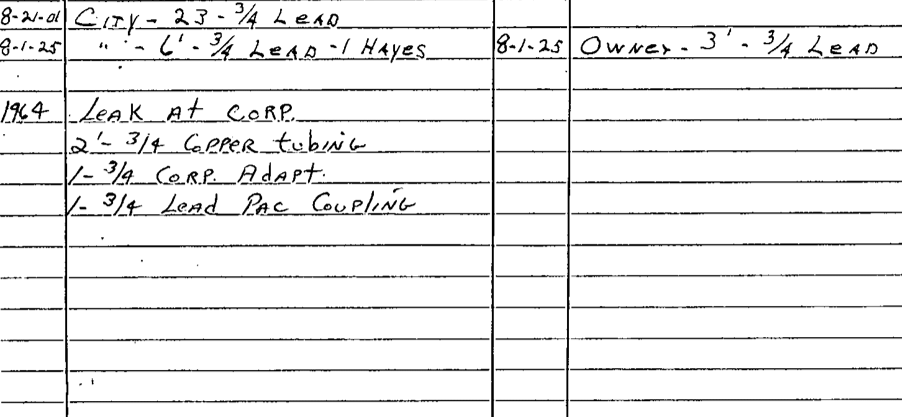 8-21-01 City - 23 - 3/4 Lead
8-1-25 " - 6' - 3/4 Lead - 1 Hayes 8-1-25 Owner - 3' - 3/4 Lead
1964 Leak At Corp.
2' - 3/4 Copper tubing
1 - 3/4 Corp. Adapt.
1 - 3/4 Lead Pac Coupling